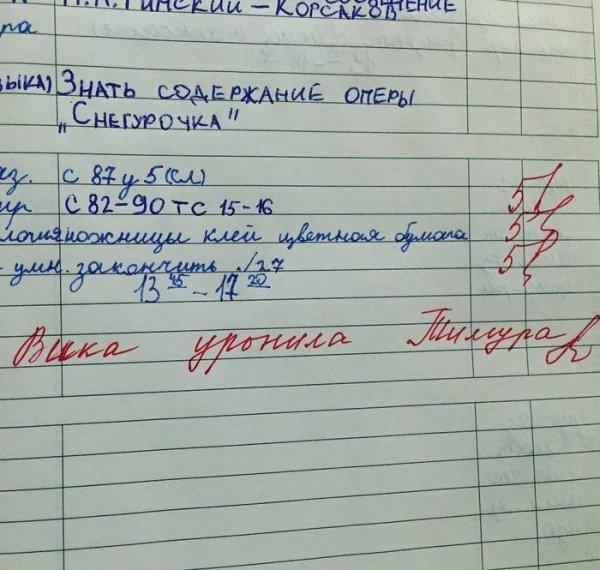 Н.А. Римский – Корсаков
ЗНАТЬ СОДЕРЖАНИЕ ОПЕРЫ
„СНЕГУРОЧКА"
с 87 у 5 (сл)
С 82–90 ТС 15–16
ножницы клей цветная бумага
умн. закончить 1/27
13 45 – 17 20
5
5
5
Вика уронила Тимура